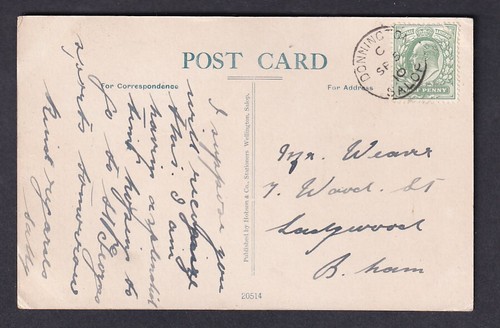 POST CARD
For Correspondence
For Address
DONNINGTON
C
SP 5
10
SALOP
PENNY
I suppose you
will recognize
this. I am
having a splendid
time hoping to
go to St Georges
sports tomorrow
Kind regards
Published by Hobson & Co., Stationers Wellington, Salop.
Mr. Weaver
7. Wood. St
Ladywood
B. ham
20514